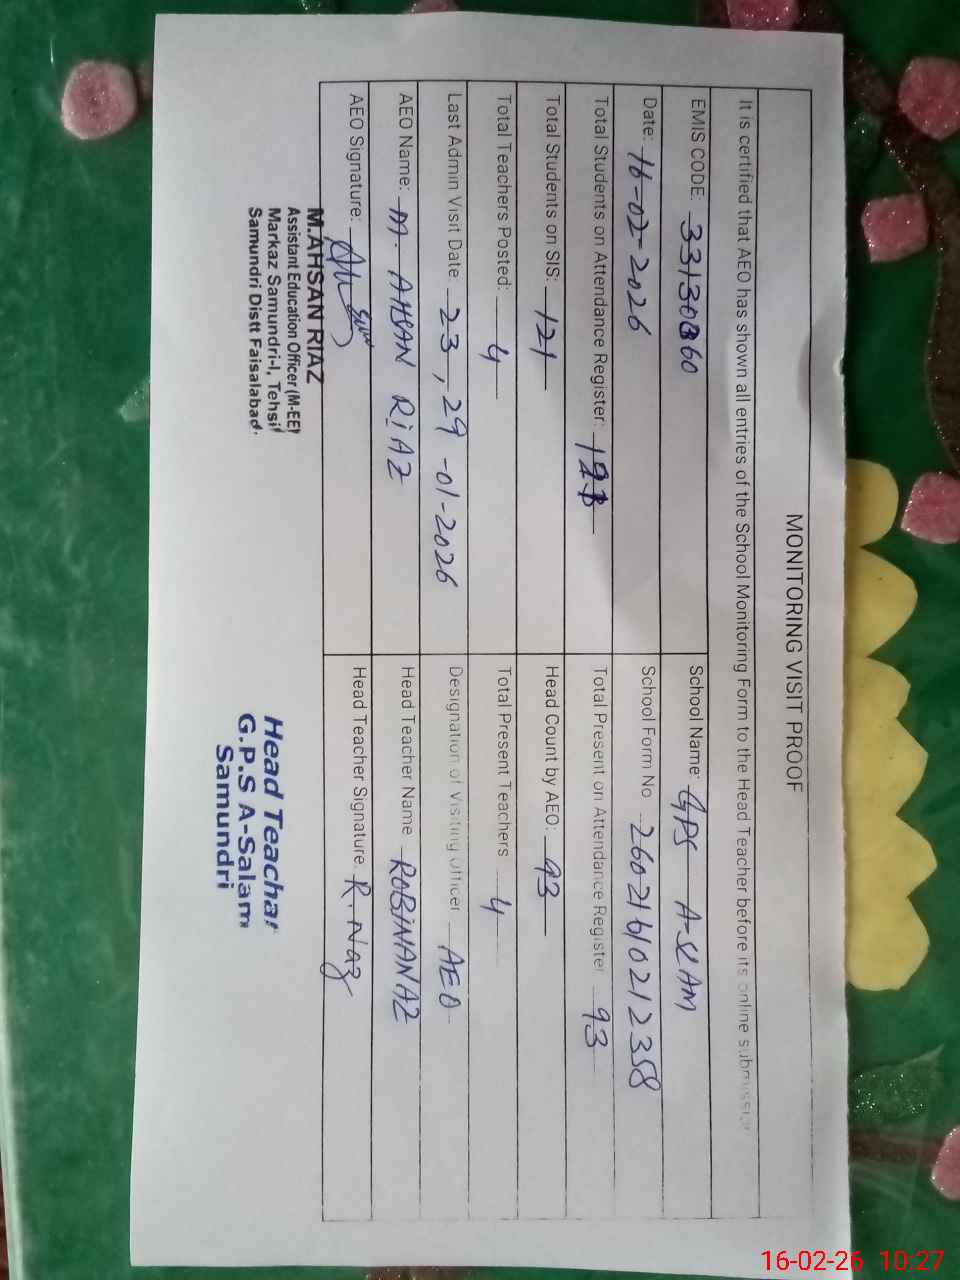 MONITORING VISIT PROOF
It is certified that AEO has shown all entries of the School Monitoring Form to the Head Teacher before its online submission
EMIS CODE: 33130360 School Name: GPS A-SLAM
Date: 16-02-2026 School Form No 26021610212358
Total Students on Attendance Register: Total Present on Attendance Register 93
Total Students on SIS: 121 Head Count by AEO: 93
Total Teachers Posted: 4 Total Present Teachers 4
Last Admin Visit Date: 23, 29-01-2026 Designation of Visiting Officer AEO
AEO Name: M. AHSAN RIAZ Head Teacher Name ROBINANAZ
AEO Signature: Head Teacher Signature. R. Naz
M.AHSAN RIAZ
Assistant Education Officer (M-EE)
Markaz Samundri-I, Tehsil
Samundri Distt Faisalabad.
Head Teacher
G.P.S A-Salam
Samundri
16-02-26 10:27